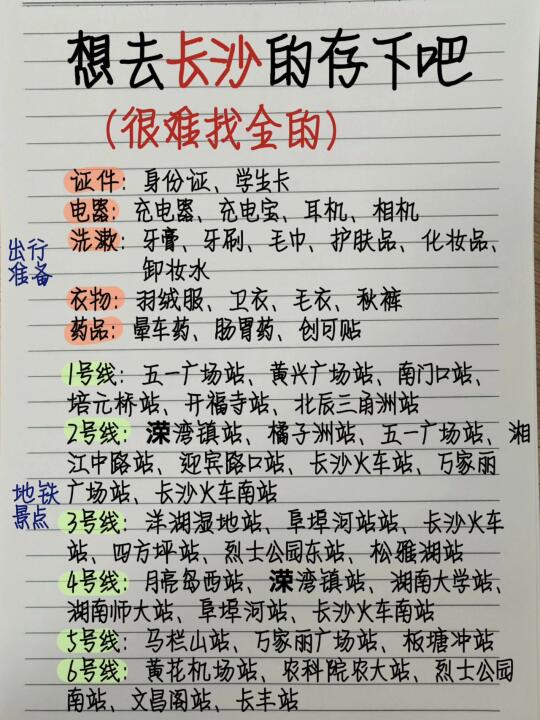 想去长沙的存下吧
(很难找全的)
出行
准备
证件：身份证、学生卡
电器：充电器、充电宝、耳机、相机
洗漱：牙膏、牙刷、毛巾、护肤品、化妆品、
卸妆水
衣物：羽绒服、卫衣、毛衣、秋裤
药品：晕车药、肠胃药、创可贴
地铁
景点
1号线：五一广场站、黄兴广场站、南门口站、
培元桥站、开福寺站、北辰三角洲站
2号线：溁湾镇站、橘子洲站、五一广场站、湘
江中路站、迎宾路口站、长沙火车站、万家丽
广场站、长沙火车南站
3号线：洋湖湿地站、阜埠河站站、长沙火车
站、四方坪站、烈士公园东站、松雅湖站
4号线：月亮岛西站、溁湾镇站、湖南大学站、
湖南师大站、阜埠河站、长沙火车南站
5号线：马栏山站、万家丽广场站、板塘冲站
6号线：黄花机场站、农科院农大站、烈士公园
南站、文昌阁站、长丰站